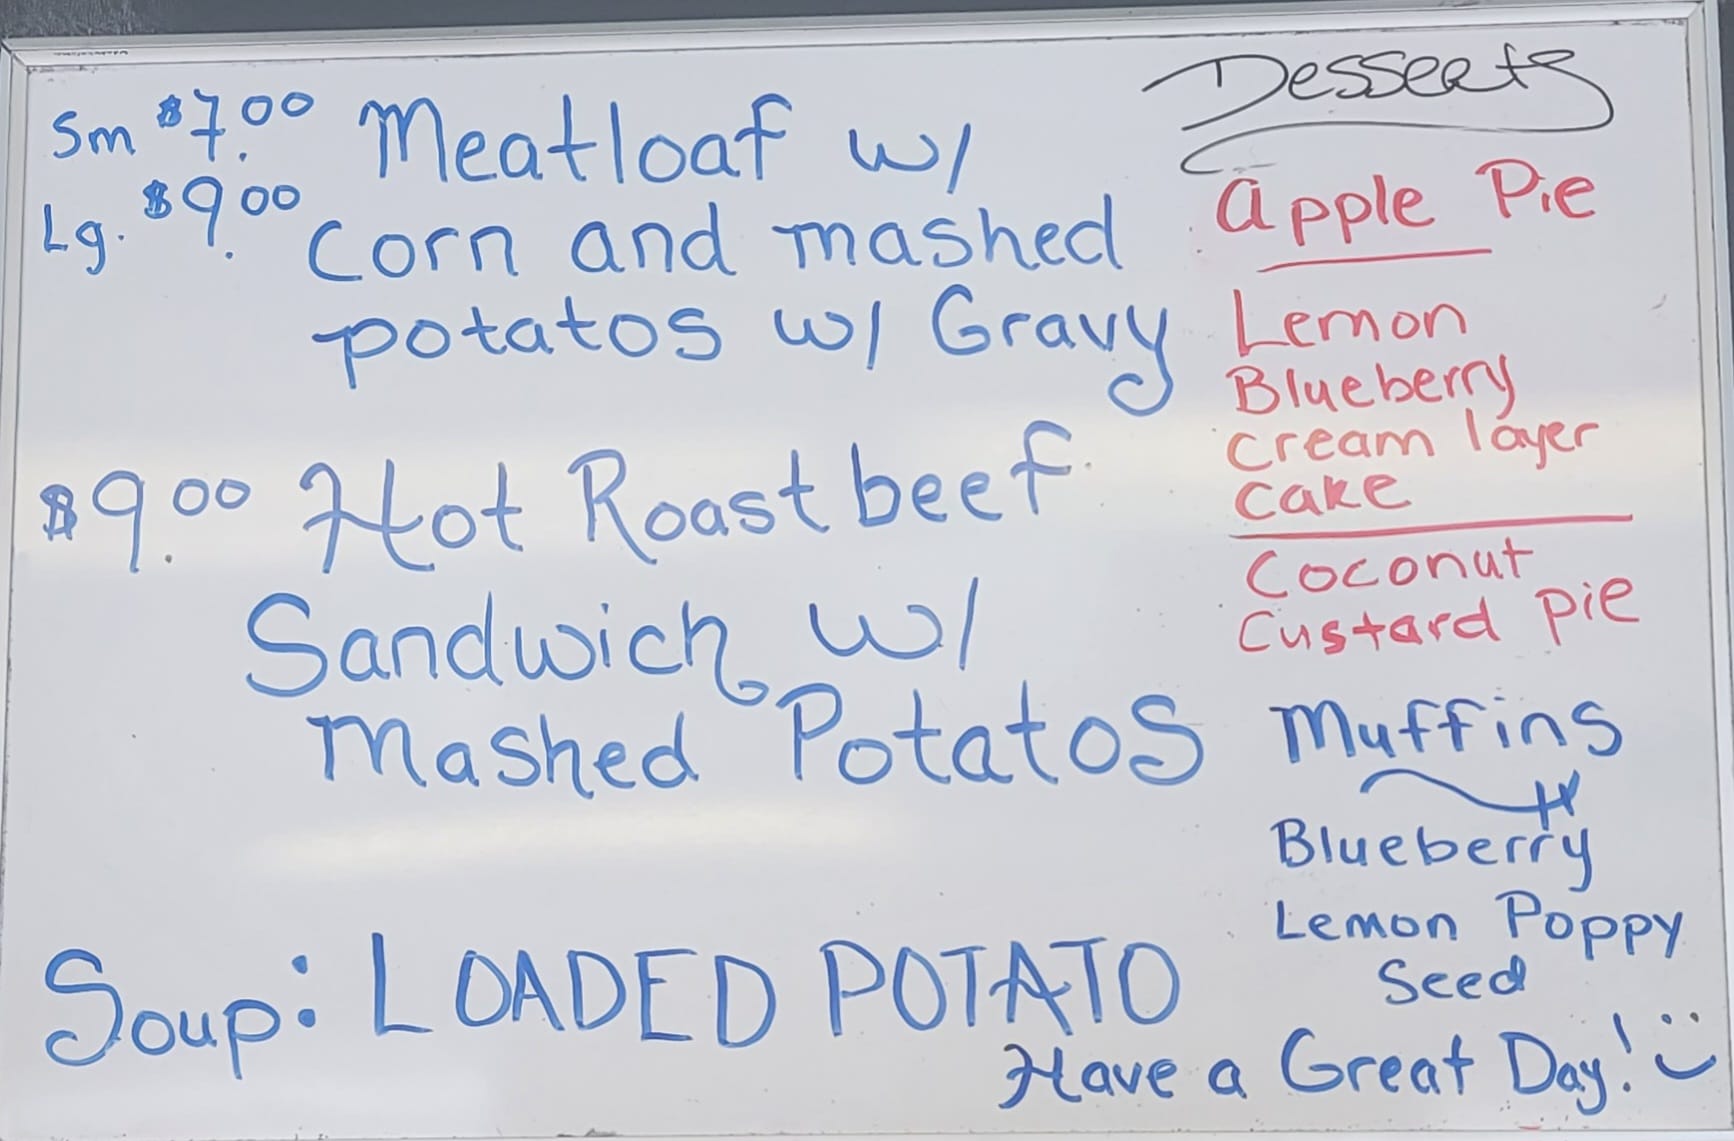 Sm $7.00 Meatloaf w/
Lg. $9.00 corn and mashed
potatos w/ Gravy
$9.00 Hot Roast beef
Sandwich w/
Mashed Potatos
Soup: LOADED POTATO
Desserts
Apple Pie
Lemon
Blueberry
cream layer
cake
Coconut
Custard pie
Muffins
Blueberry
Lemon Poppy
Seed
Have a Great Day!